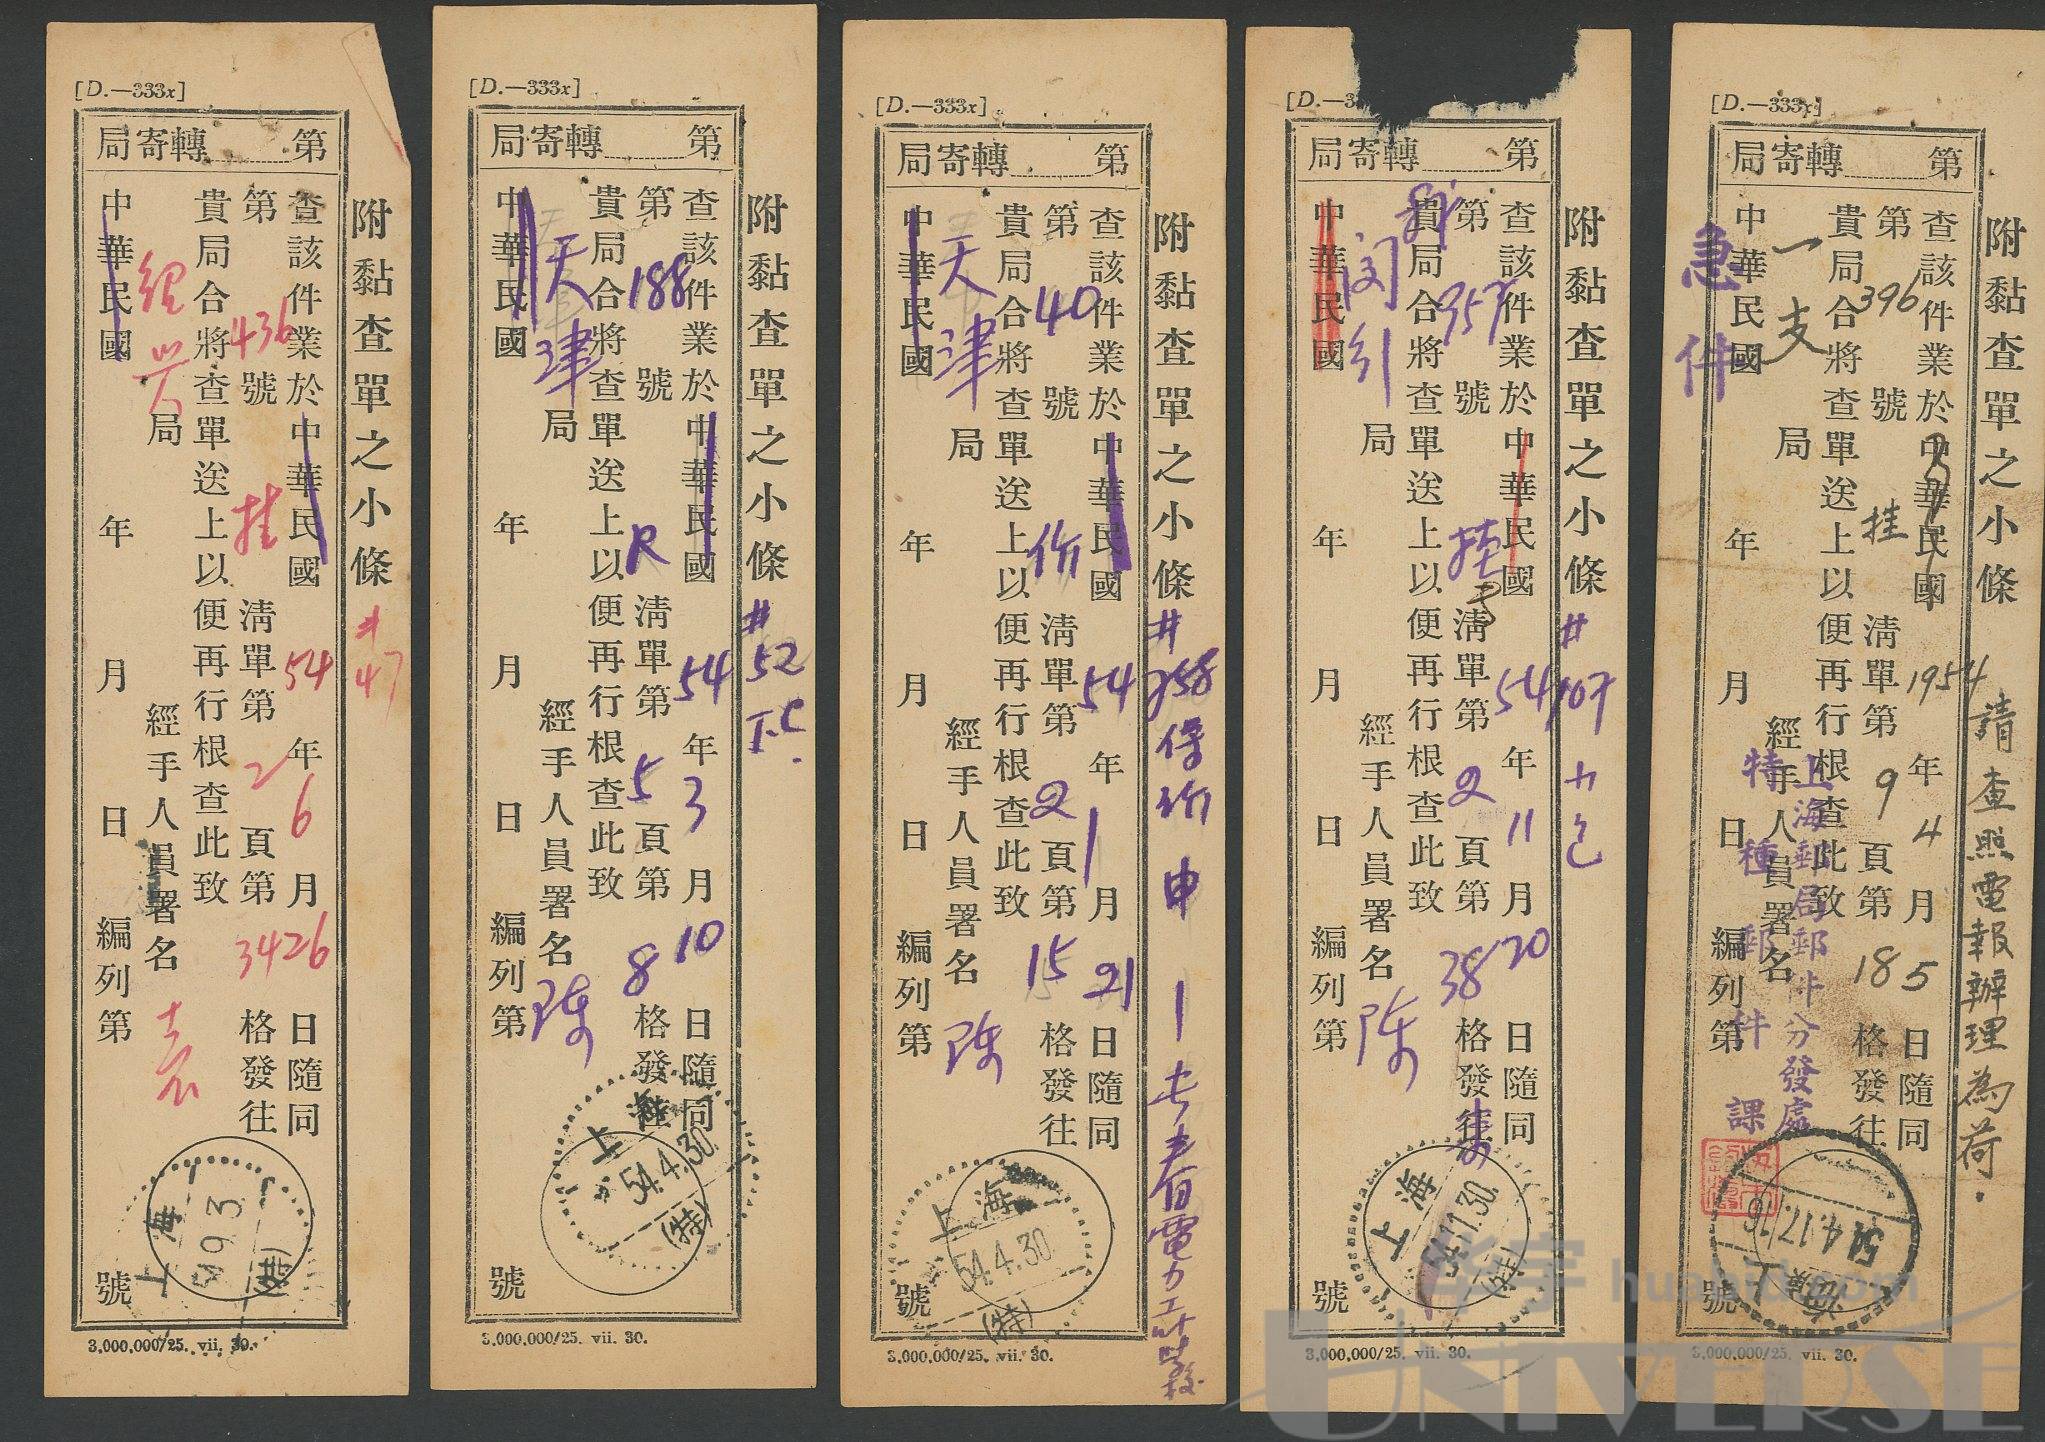 [D.—333x]
第 轉寄局
附黏查單之小條 #47
查該件業於中華民國 54 年 6 月 26 日隨同
第 436 號 挂 清單第 2 頁第 34 格發往
貴局合將查單送上以便再行根查此致
紹興 局 經手人員署名 袁
中華民國 年 月 日 編列第 號
上海
54.9.3
(特)
3,000,000/25. vii. 30.
[D.—333x]
第 轉寄局
附黏查單之小條 #52 T.C.
查該件業於中華民國 54 年 3 月 10 日隨同
第 188 號 R 清單第 5 頁第 8 格發往
貴局合將查單送上以便再行根查此致
天津 局 經手人員署名 陈
中華民國 年 月 日 編列第 號
上海
54.4.30
(特)
3,000,000/25. vii. 30.
[D.—333x]
第 轉寄局
附黏查單之小條 #258 電力工
查該件業於中華民國 54 年 1 月 21 日隨同
第 40 號 清單第 2 頁第 15 格發往
貴局合將查單送上以便再行根查此致
天津 局 經手人員署名 陈
中華民國 年 月 日 編列第 號
上海
54.4.30
(特)
3,000,000/25. vii. 30.
[D.—33
第 轉寄局
附黏查單之小條 #107
查該件業於中華民國 54 年 11 月 20 日隨同
第 957 號 挂 清單第 2 頁第 38 格發往
貴局合將查單送上以便再行根查此致
局 經手人員署名 陈
中華民國 年 月 日 編列第 號
上海
54.11.30
(特)
3,000,000/25. vii. 30.
[D.—333x]
第 轉寄局
附黏查單之小條 請查照電報辦理為荷.
查該件業於中華民國 1954 年 4 月 5 日隨同
第 396 號 挂 清單第 9 頁第 18 格發往
貴局合將查單送上以便再行根查此致
一支 局 經手人員署名
中華民國 年 月 日 編列第 號
急件
上海郵局郵件分發處
特種郵件課
上海
54.4.17.16
3,000,000/25. vii. 30.
华宇 huabid.com
UNIVERSE